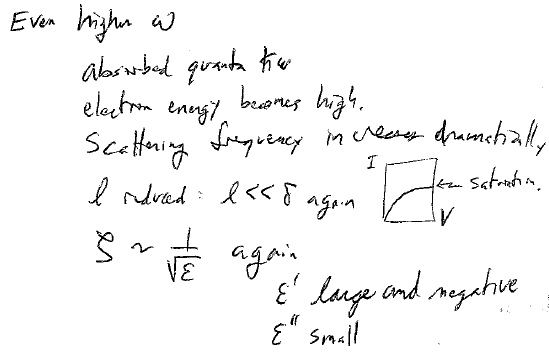 Even higher ω
absorbed quanta ℏω
electron energy becomes high.
Scattering frequency increases dramatically
l reduced : l << δ again
I
← saturation.
V
ζ ~ 1/√ε again
ε' large and negative
ε" small